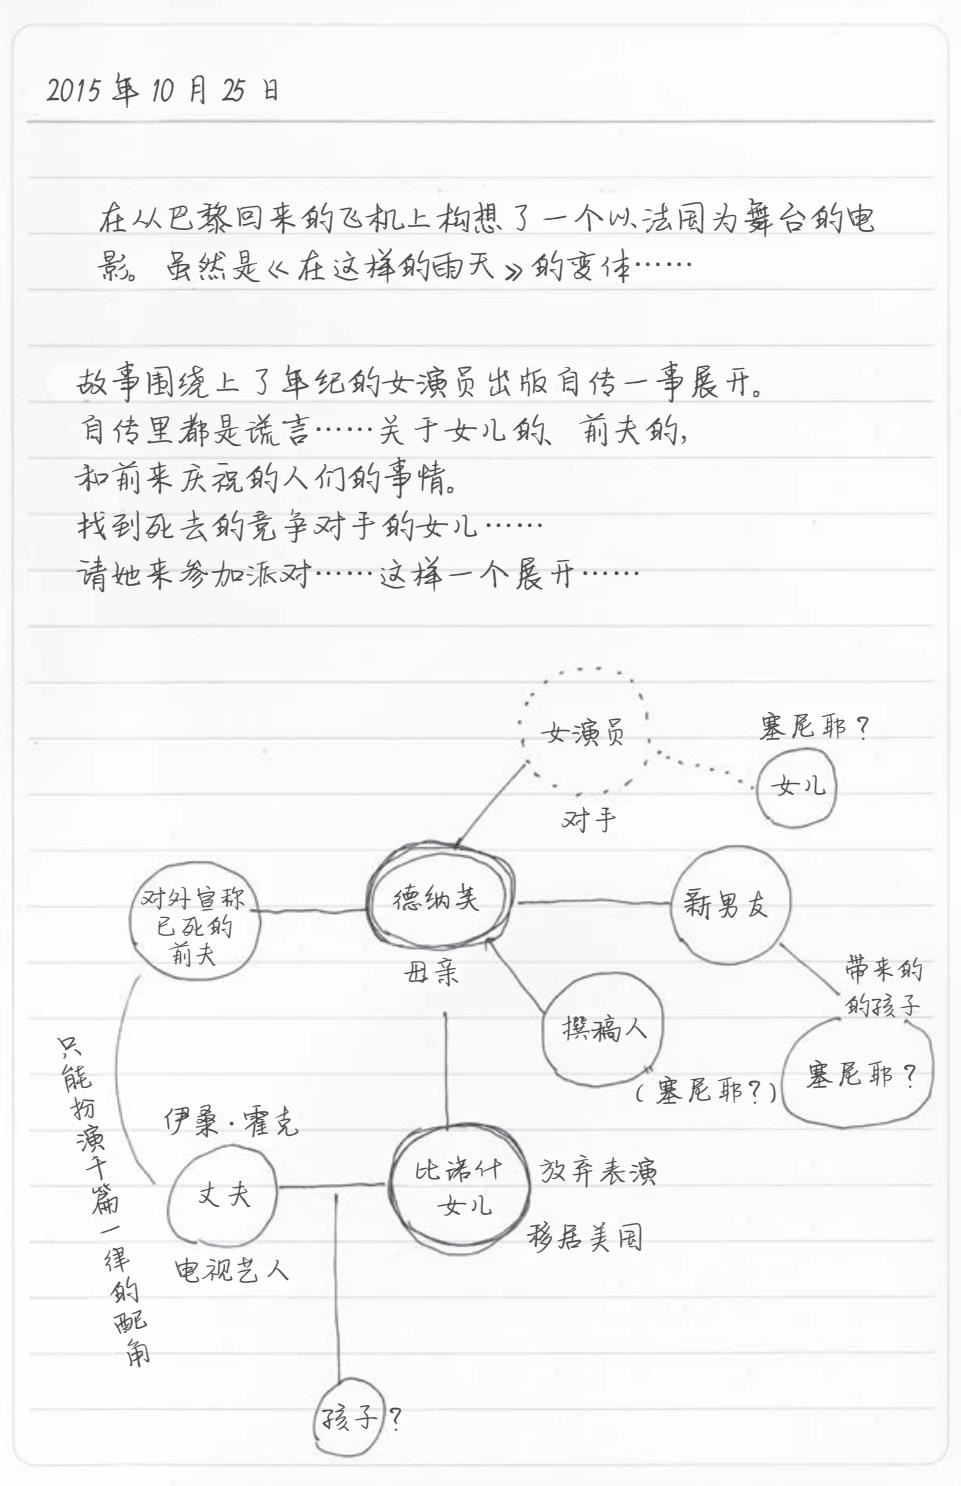 2015年10月25日
在从巴黎回来的飞机上构想了一个以法国为舞台的电
影。虽然是《在这样的雨天》的变体……
故事围绕上了年纪的女演员出版自传一事展开。
自传里都是谎言……关于女儿的、前夫的,
和前来庆祝的人们的事情。
找到死去的竞争对手的女儿……
请她来参加派对……这样一个展开……
女演员
对手
塞尼耶?
女儿
对外宣称
已死的
前夫
德纳芙
母亲
新男友
带来的
的孩子
塞尼耶?
撰稿人
(塞尼耶?)
只能扮演千篇一律的配角
伊桑·霍克
丈夫
电视艺人
比诺什
女儿
放弃表演
移居美国
孩子?